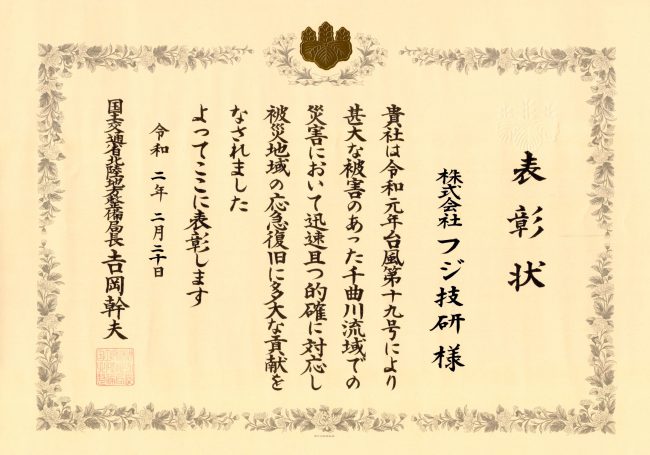 表彰状
株式会社 フジ技研 様
貴社は令和元年台風第十九号により
甚大な被害のあった千曲川流域での
災害において迅速且つ的確に対応し
被災地域の応急復旧に多大な貢献を
なされました
よってここに表彰します
令和 二年 二月二十日
国土交通省北陸地方整備局長 吉岡幹夫